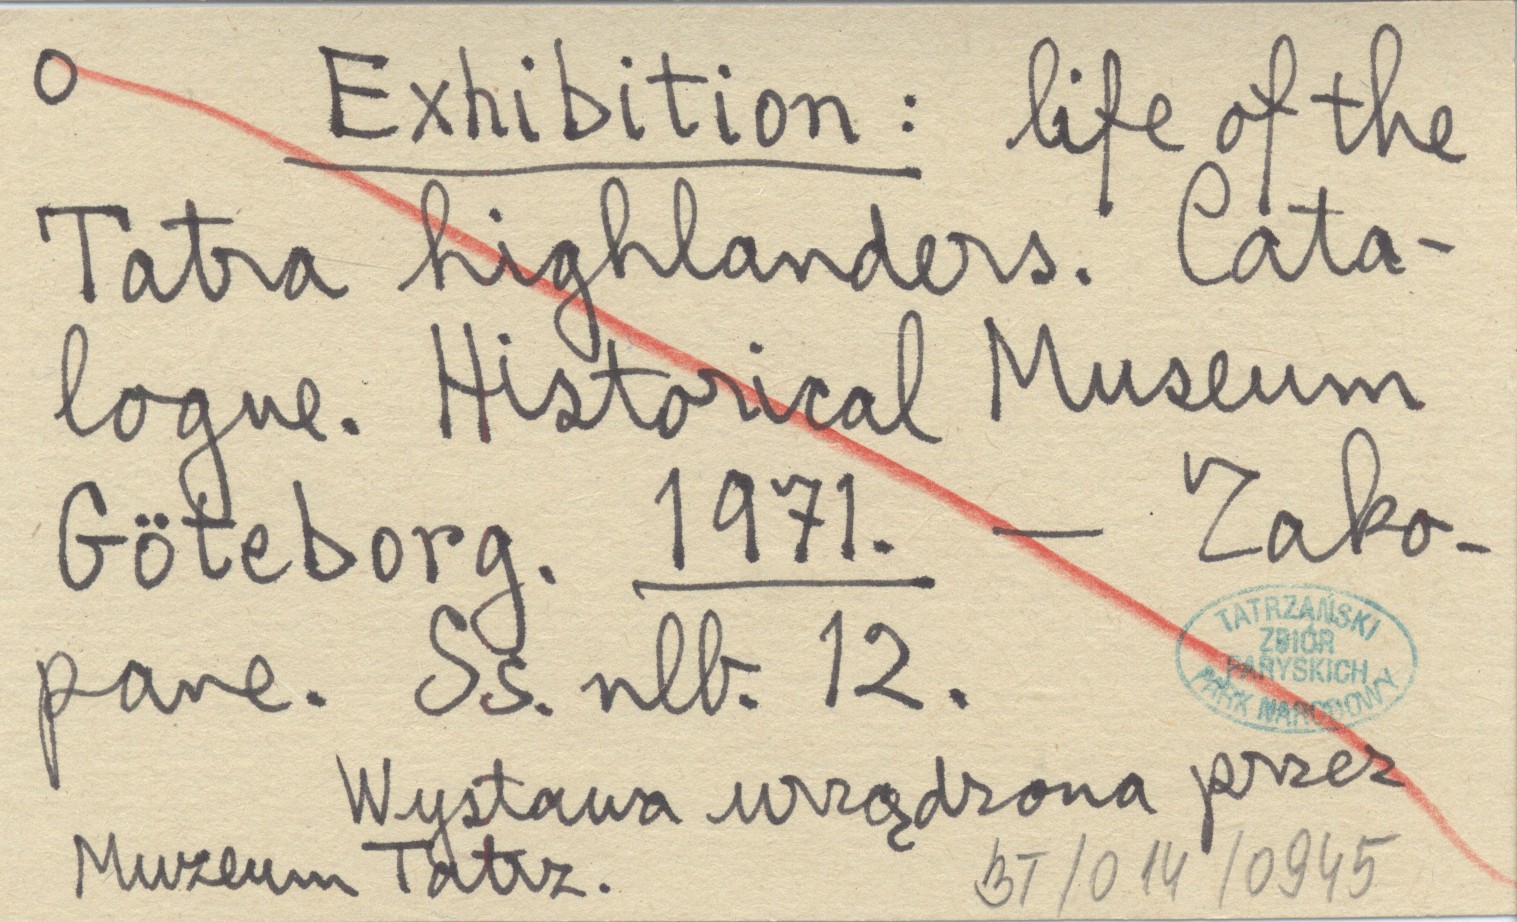 O Exhibition: life of the
Tatra highlanders. Cata-
logue. Historical Museum
Göteborg. 1971. — Zako-
pane. Ss. nlb. 12.
TATRZAŃSKI
ZBIÓR
PARYSKICH
PARK NARODOWY
Wystawa urządzona przez
Muzeum Tatrz.
BT/014/0945